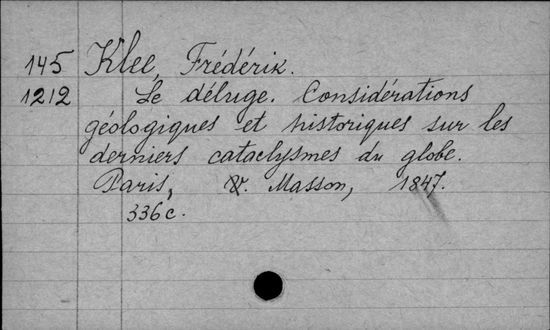 145 Klee, Frédérik.
1212 Le déluge. Considérations
géologiques et historiques sur les
derniers cataclysmes du globe.
Paris, V. Masson, 1847.
336c.